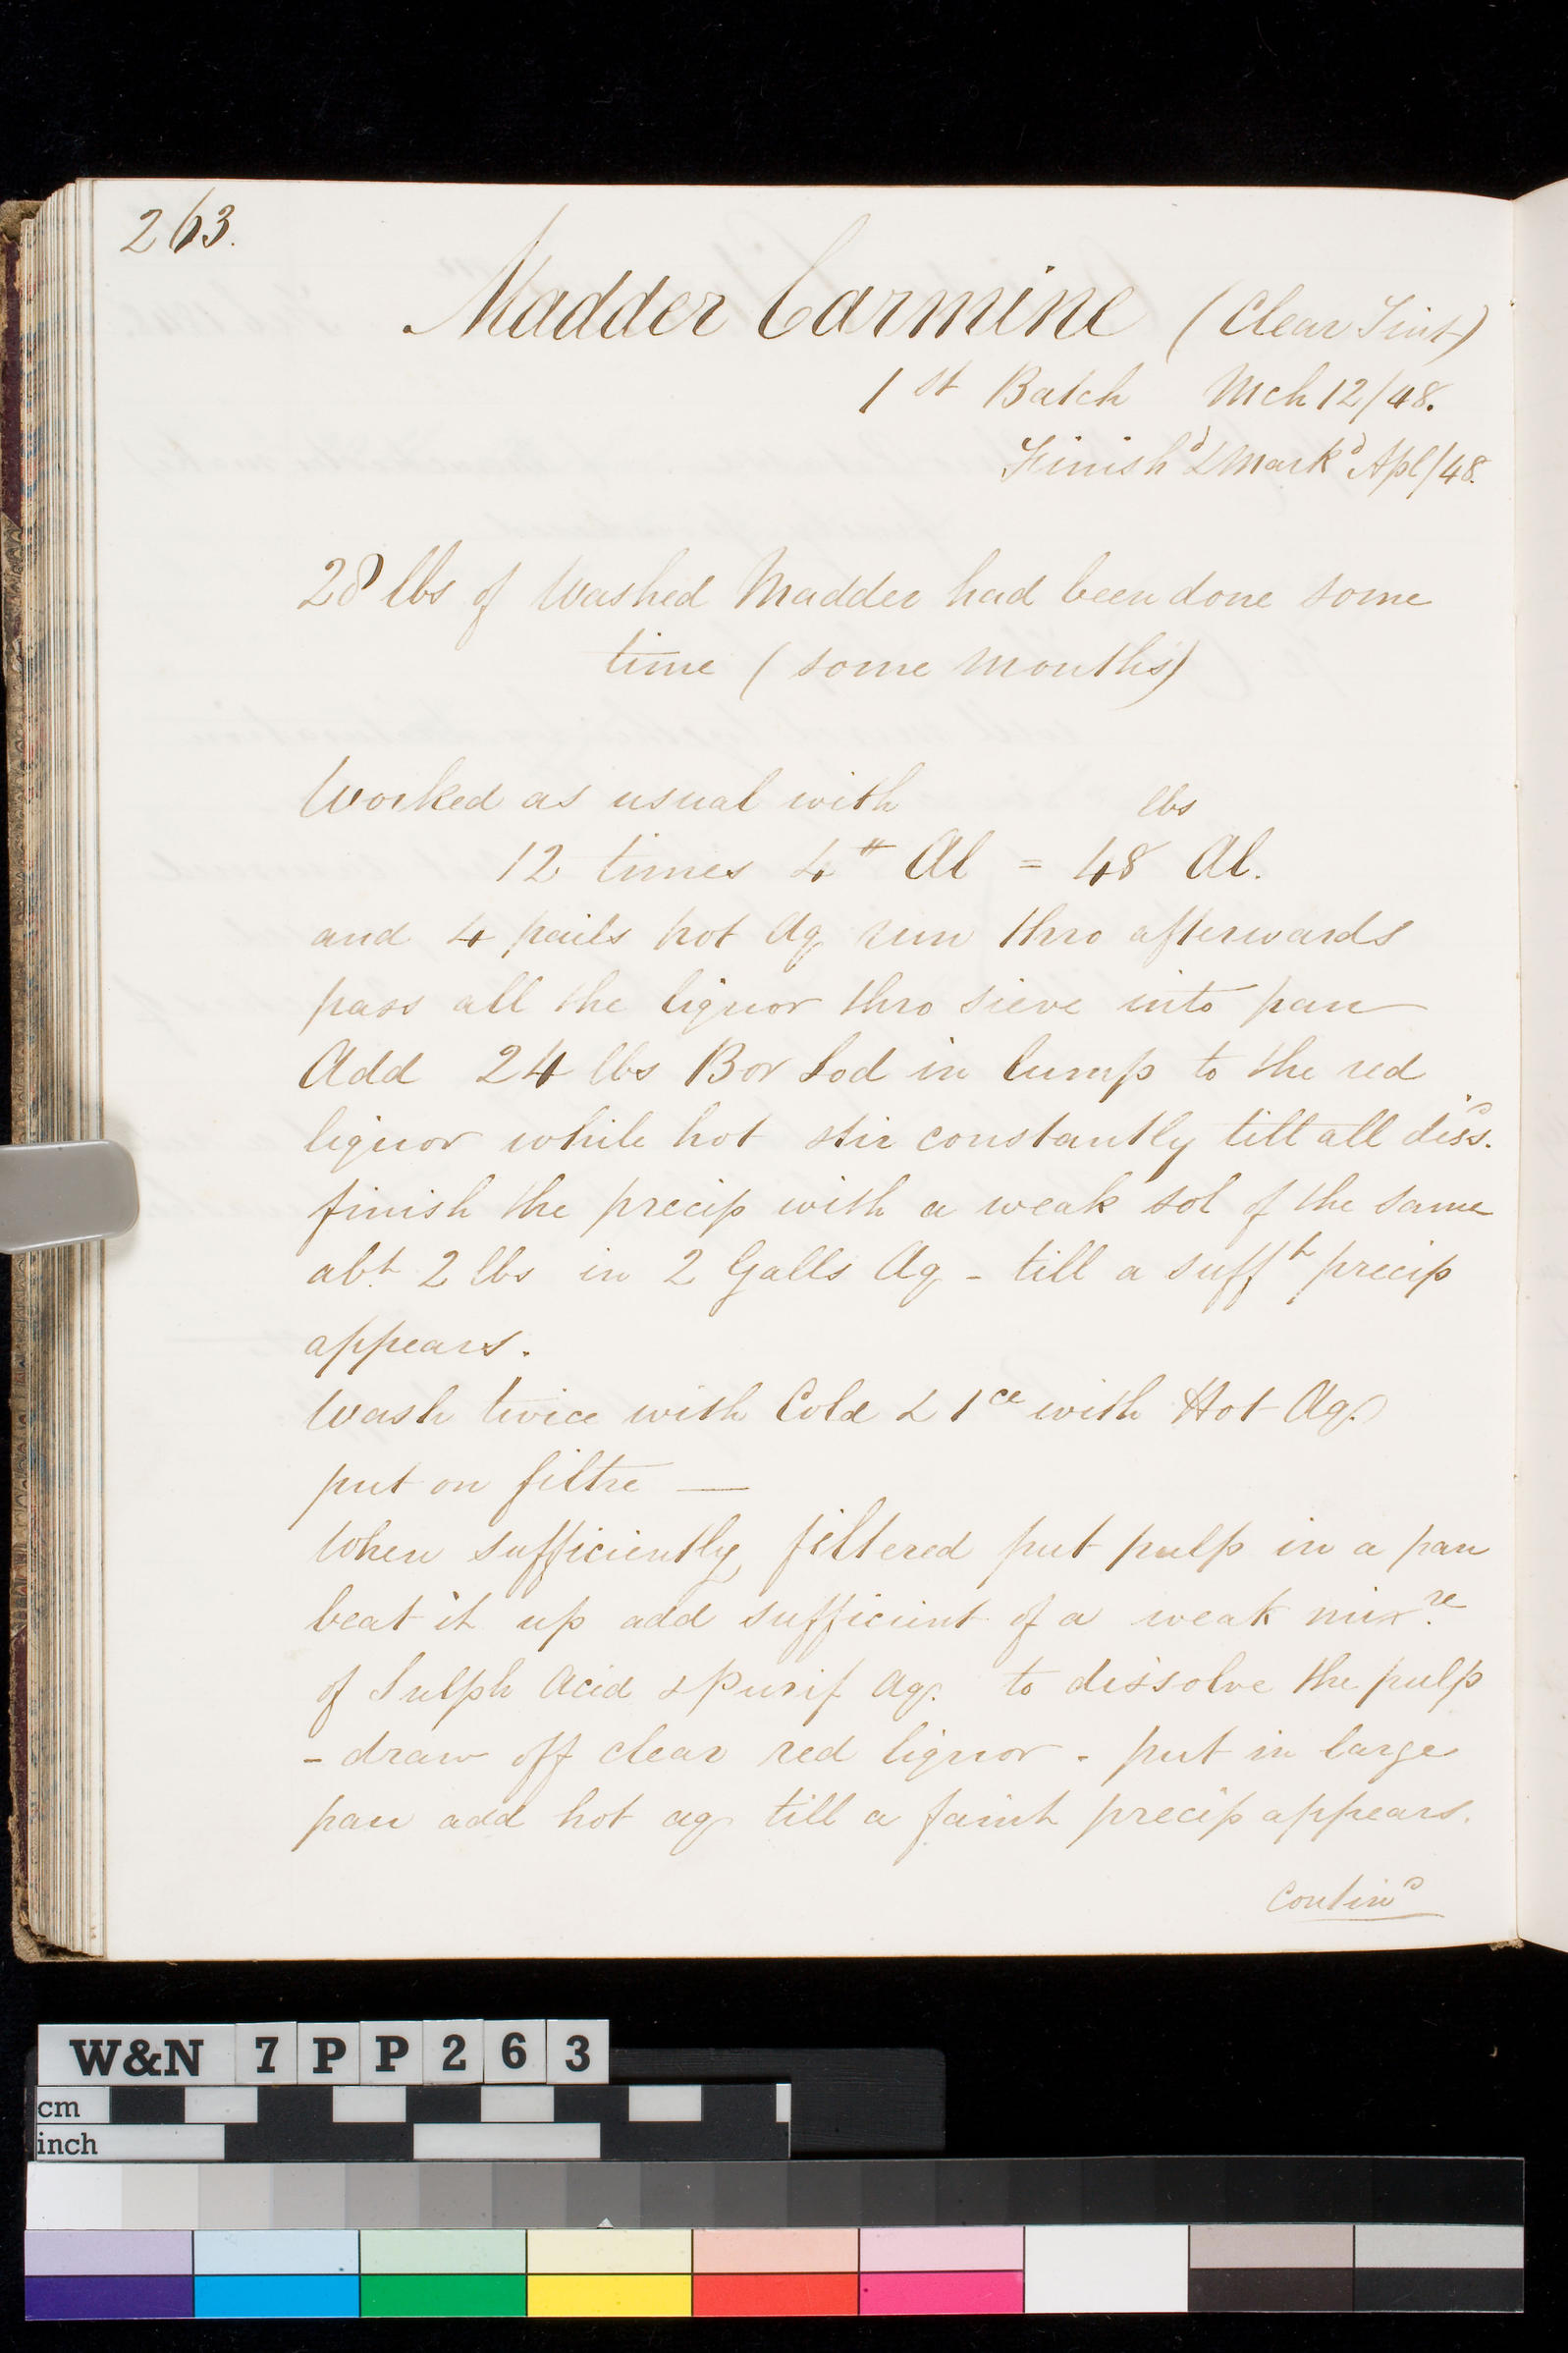 263.
Madder Carmine (Clear Tint)
1st Batch Mch 12/48.
Finishd & Markd Apl/48.
28 lbs of Washed Madder had been done some
time (some months)
Worked as usual with
lbs
12 times 4# Al = 48 Al.
and 4 pails hot Aq run thro afterwards
pass all the liquor thro sieve into pan
Add 24 lbs Bor Sod in lump to the red
liquor while hot stir constantly till all dissd.
finish the precip with a weak sol of the same
abt 2 lbs in 2 Galls Aq - till a sufft precip
appears.
Wash twice with Cold & 1ce with Hot Aq.
put on filtre —
When sufficiently filtered put pulp in a pan
beat it up add sufficient of a weak mixre.
of Sulph Acid & Purif Aq. to dissolve the pulp
- draw off clear red liquor - put in large
pan add hot aq till a faint precip appears.
Contind
W&N 7PP263
cm
inch